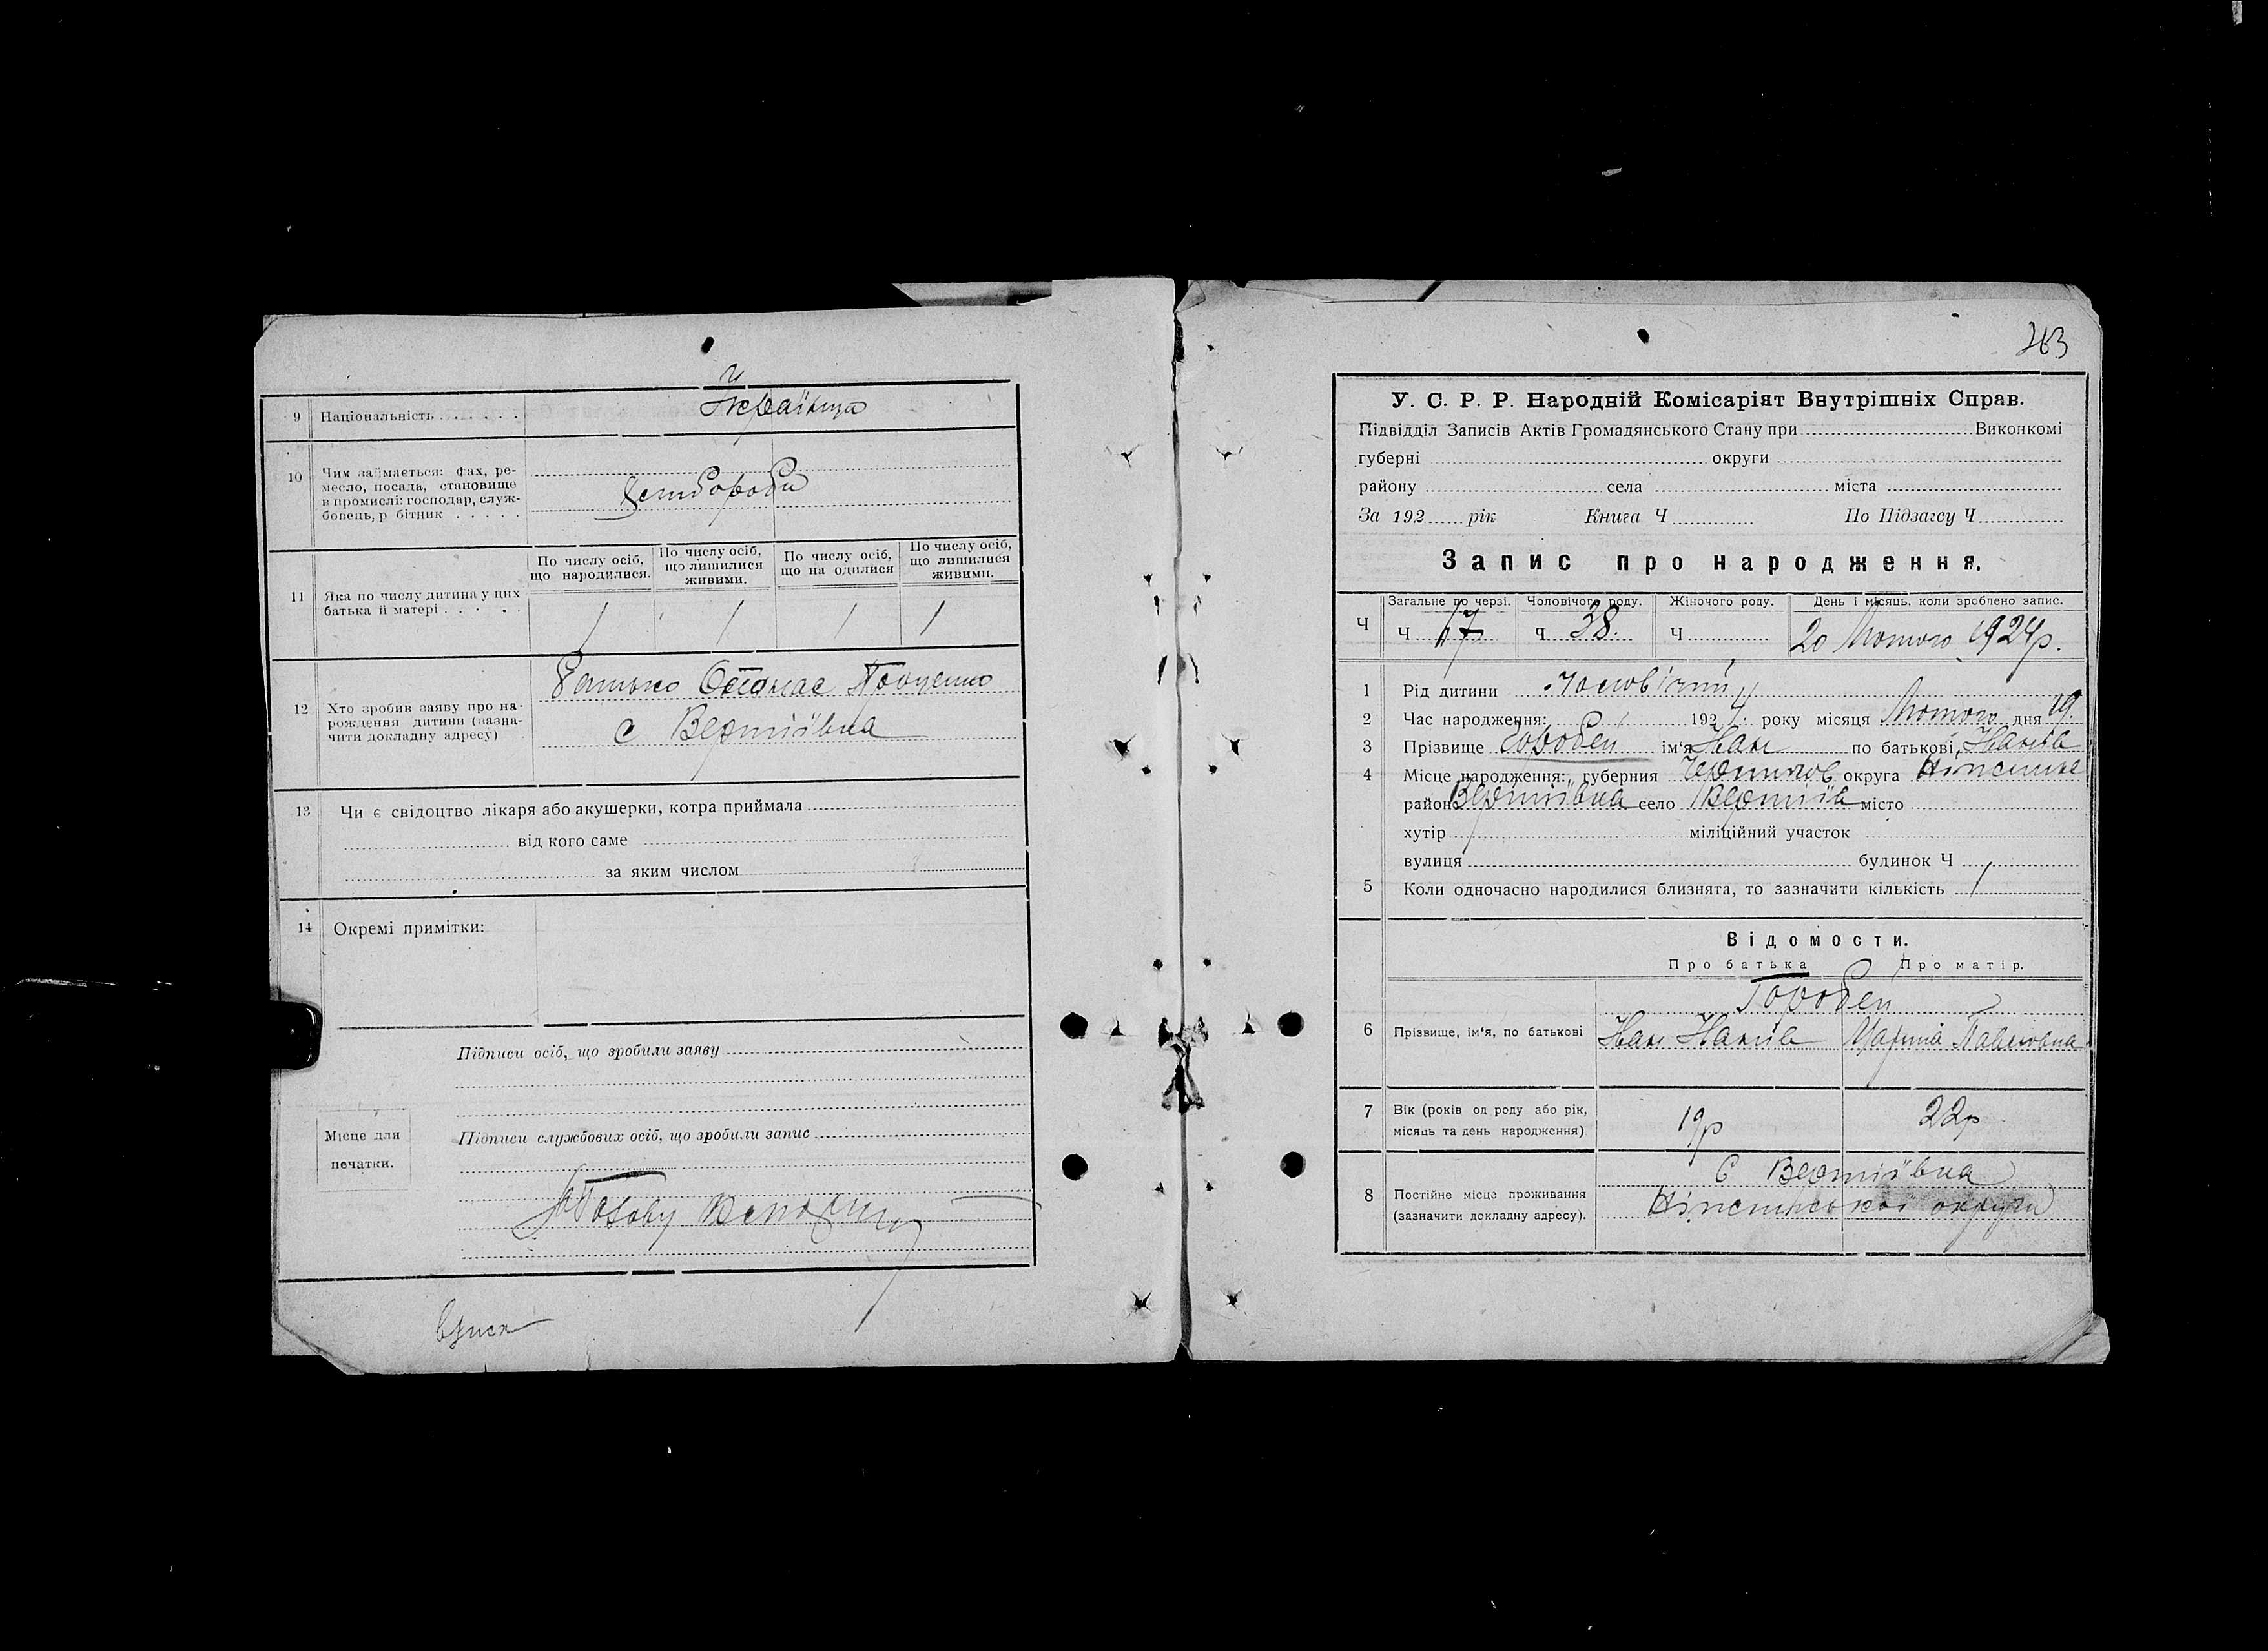 9 Національність . . . . . . Українці
10 Чим займається: фах, ре-
месло, посада, становище
в промислі: господар, служ-
бовець, р бітник . . . . .
Хлібороби
11 Яка по числу дитина у цих
батька й матері . . . . .
По числу осіб, що народилися.
По числу осіб, що лишилися живими.
По числу осіб, що на одилися
По числу осіб, що лишилися живими.
1 1 1 1
12 Хто зробив заяву про на-
рождення дитини (зазна-
чити докладну адресу)
Батько Опанас Проценко
с Вертіївка
13 Чи є свідоцтво лікаря або акушерки, котра приймала
від кого саме
за яким числом
14 Окремі примітки:
Підписи осіб, що зробили заяву
Підписи службових осіб, що зробили запис
Місце для
печатки.
263
У. С. Р. Р. Народній Комісаріят Внутрішніх Справ.
Підвідділ Записів Актів Громадянського Стану при Виконкомі
губерні округи
району села міста
За 192 рік Книга Ч По Підзагсу Ч
Запис про народження.
Загальне по черзі. Чоловічого роду. Жіночого роду. День і місяць, коли зроблено запис.
Ч Ч 17 Ч 38. Ч 20 Лютого 1924р.
1 Рід дитини Чоловічий
2 Час народження: 1924. року місяця Лютого дня 19
3 Прізвище Горобей ім'я Іван по батькові Іванів
4 Місце народження: губерния Чернигов округа Ніженське
район Вертіївка село Вертіїв місто
хутір міліційний участок
вулиця будинок Ч
5 Коли одночасно народилися близнята, то зазначити кількість 1
Відомости.
Про батька Про матір.
Горобей
6 Прізвище, ім'я, по батькові Іван Іванів Марпіа Павловна
7 Вік (років од роду або рік,
місяць та день народження) 19р 22р
8 Постійне місце проживання
(зазначити докладну адресу).
С Вертіївка
Ніженської округи